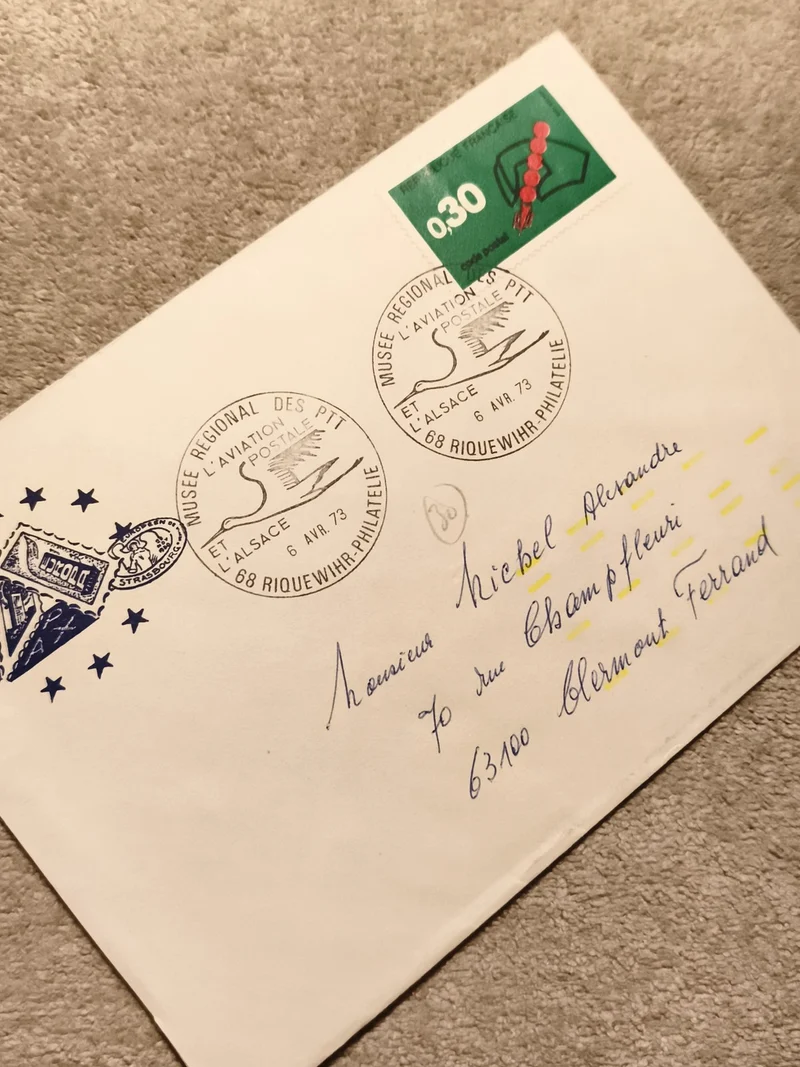 REPUBLIQUE FRANCAISE
0,30
code postal
MUSEE REGIONAL DES PTT
L'AVIATION
POSTALE
ET
L'ALSACE
6 AVR. 73
68 RIQUEWIHR-PHILATELIE
MUSEE REGIONAL DES PTT
L'AVIATION
POSTALE
ET
L'ALSACE
6 AVR. 73
68 RIQUEWIHR-PHILATELIE
STRASBOURG
30
Monsieur Michel Alexandre
70 rue Champfleuri
63100 Clermont Ferrand